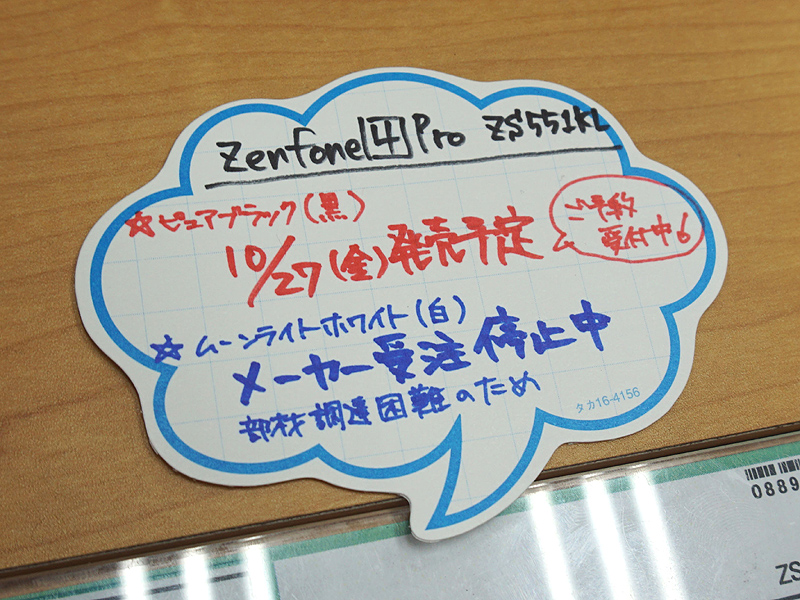 Zenfone 4 Pro ZS551KL
☆ピュアブラック(黒)
10/27(金)発売予定
ご予約
受付中!
☆ムーンライトホワイト(白)
メーカー受注停止中
部材調達困難のため
タカ16-4156
0889
ZS